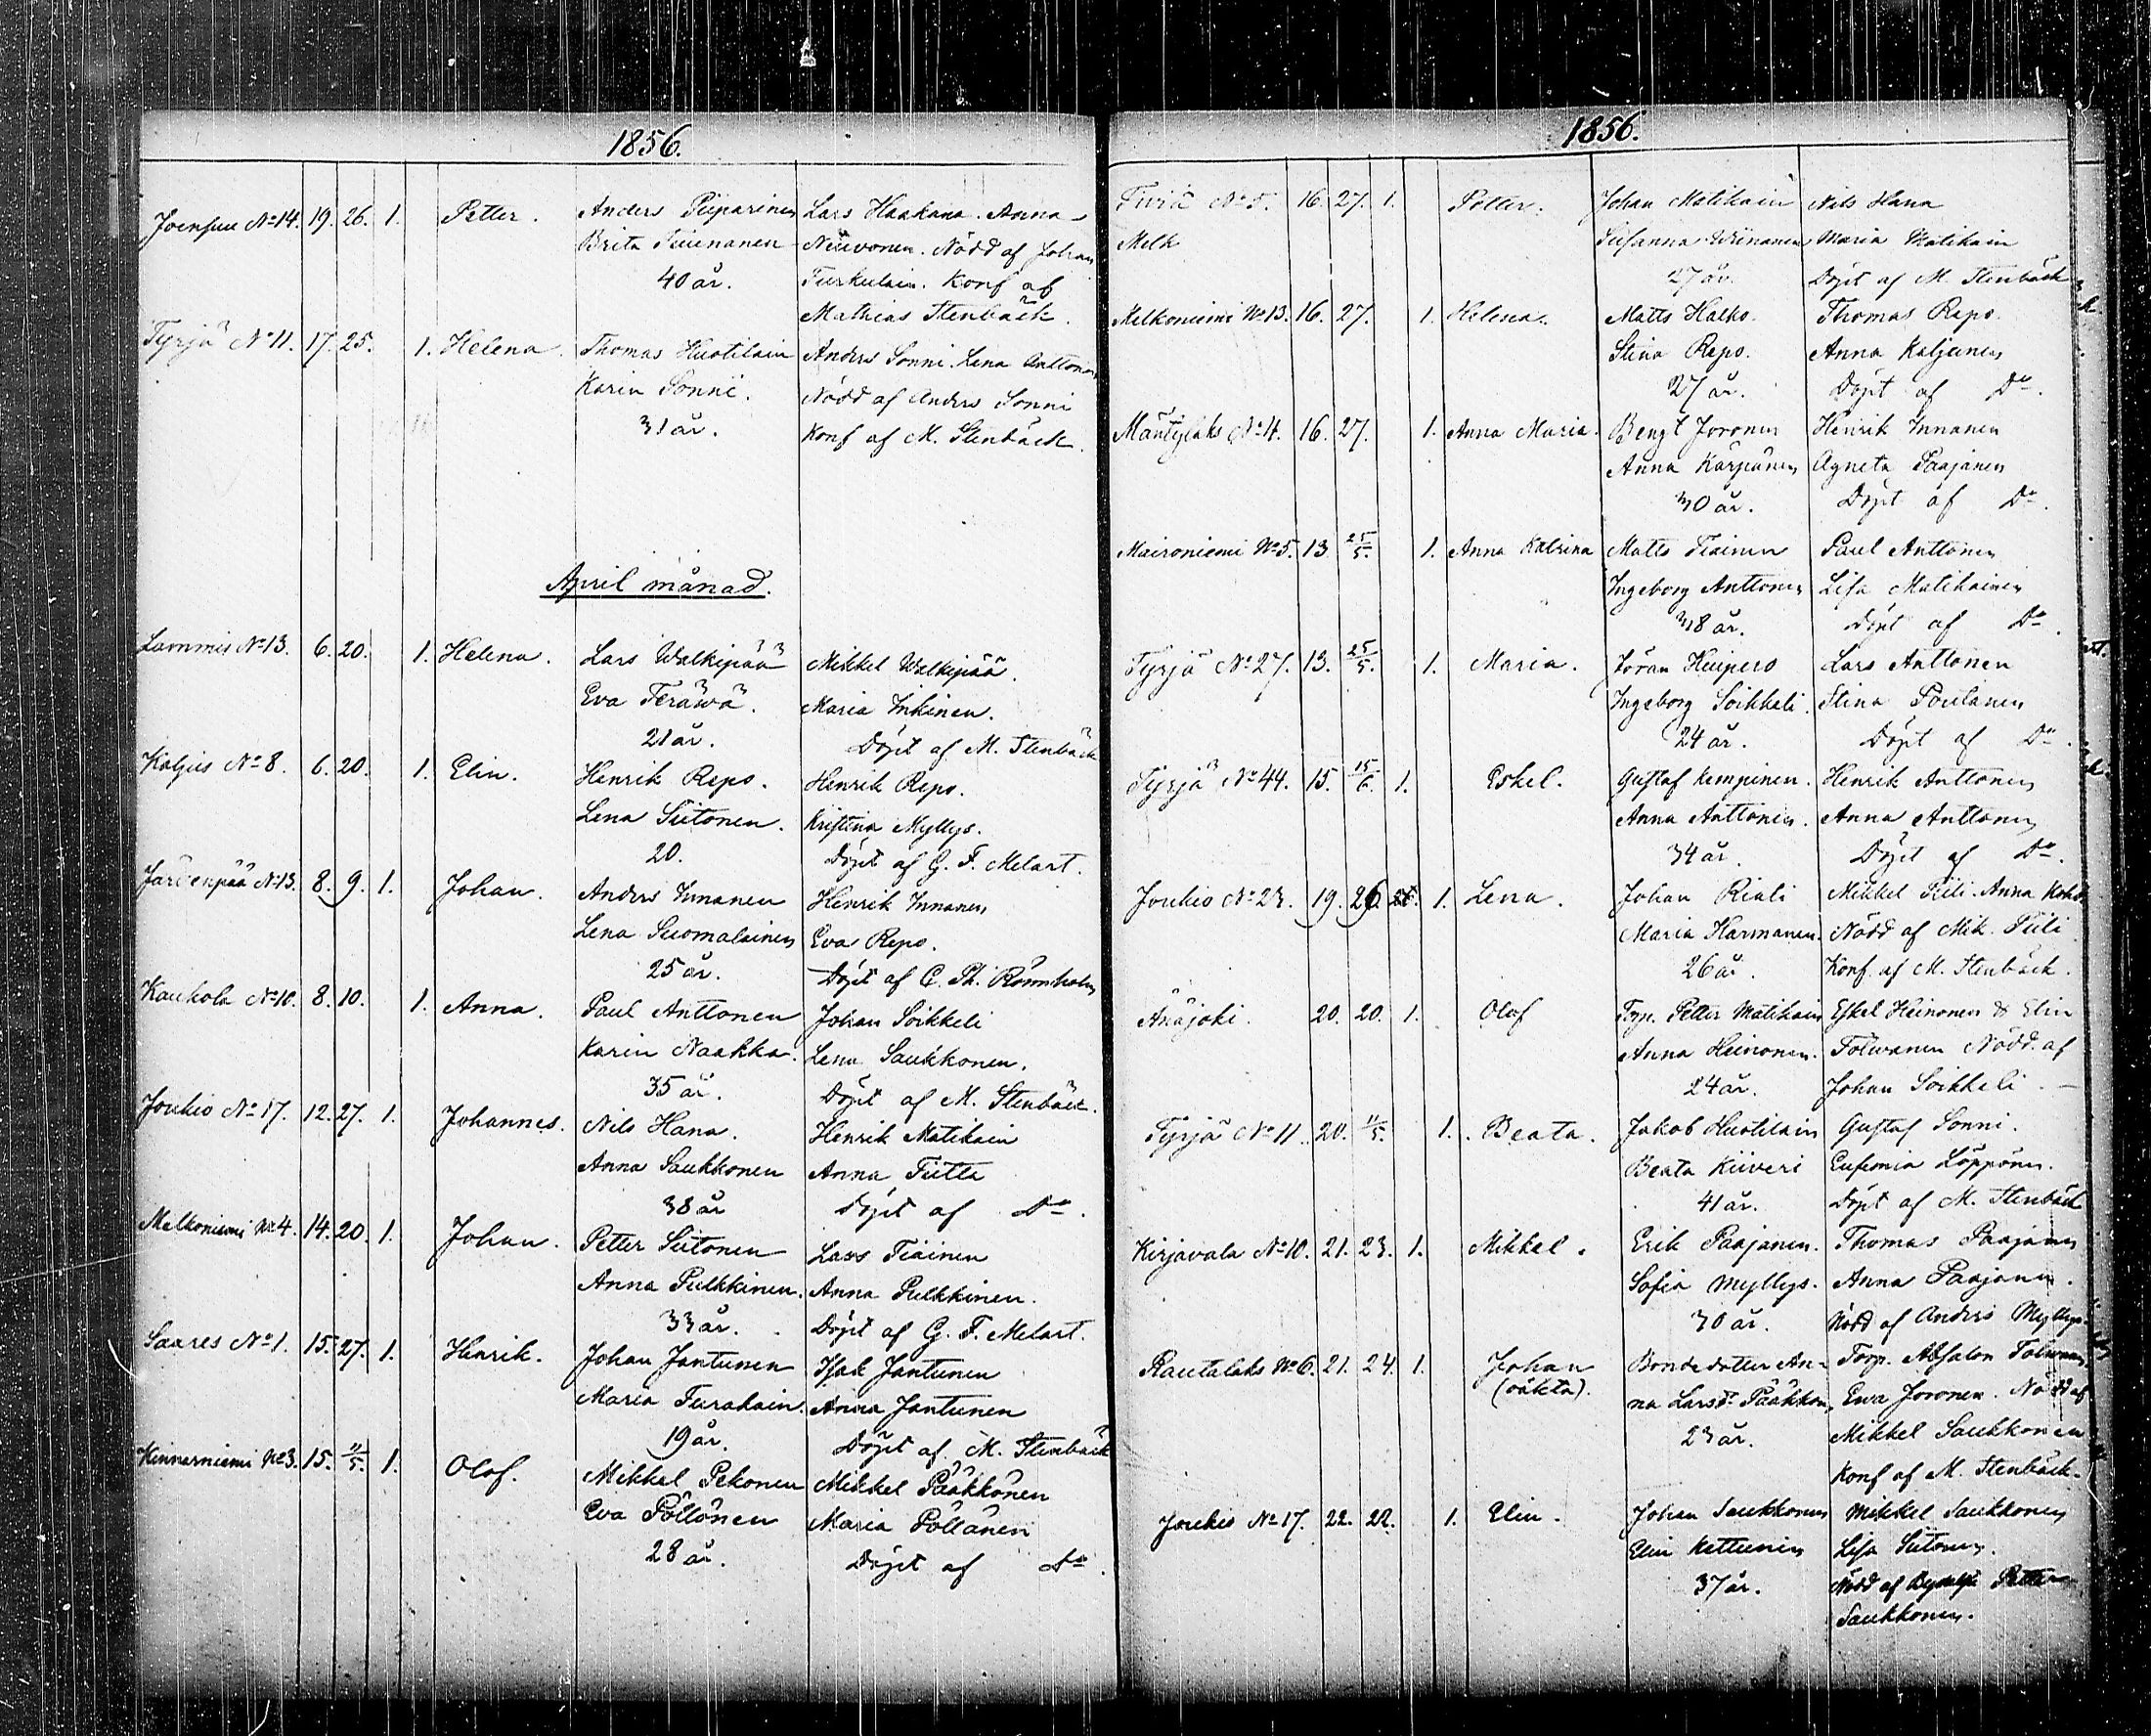 1856.
Joensuu No 14. 19. 26. 1. Petter. Anders Piiparinen Lars Haakana. Anna
Brita Tiiienanen Neuvonen. Nödd af Johan
40 år. Turkulain. Konf af
Mathias Stenbäck.
Tyrjä No 11. 17. 25. 1. Helena. Thomas Huotilain Anders Sonni. Lena Anttonen
Karin Sonni. Nödd af Anders Sonni
31 år. Konf af M. Stenbäck.
April månad.
Lammis No 13. 6. 20. 1. Helena. Lars Walkipää Mikkel Walkipää.
Eva Teräwä. Maria Inkinen.
21 år. Döpt af M. Stenbäck
Koljus No 8. 6. 20. 1. Elin. Henrik Repo. Henrik Repo.
Lena Siitonen. Kristina Myllys.
20. Döpt af G. F. Melart.
Järvenpää No 13. 8. 9. 1. Johan. Anders Innanen Henrik Innanen
Lena Suomalainen Eva Repo.
25 år. Döpt af C. Th. Rönnholm
Kaukola No 10. 8. 10. 1. Anna. Paul Anttonen Johan Soikkeli
Karin Naakka. Lena Saukkonen.
35 år. Döpt af M. Stenbäck.
Joukio No 17. 12. 27. 1. Johannes. Nils Hana. Henrik Matikain
Anna Saukkonen Anna Tiitta
38 år Döpt af Do.
Melkoniemi No 4. 14. 20. 1. Johan. Petter Siitonen Lars Tiainen
Anna Pulkkinen. Anna Pulkkinen.
33 år. Döpt af G. F. Melart.
Saares No 1. 15. 27. 1. Henrik. Johan Jantunen Isak Jantunen
Maria Turakain. Anna Jantunen
19 år. Döpt af M. Stenbäck
Kinnarniemi No 3. 15. 11/5. 1. Olof. Mikkel Pekonen Mikkel Pääkkönen
Eva Pöllönen Maria Pöllänen
28 år. Döpt af Do.
1856.
No 5. 16. 27. 1. Petter. Johan Matikain Nils Hana
Melk Susanna Wiinanen Maria Matikain
27 år. Döpt af M. Stenbäck
Melkoniemi No 13. 16. 27. 1. Helena. Matts Halko. Thomas Repo.
Stina Repo. Anna Koljunen
27 år. Döpt af Do.
Mäntylaks No 4. 16. 27. 1. Anna Maria. Bengt Joronen Henrik Innanen
Anna Kärpänen Agneta Paajanen
30 år. Döpt af Do.
Maironiemi No 5. 13 25/5. 1. Anna Katrina Matts Tiainen Paul Anttonen
Ingeborg Anttonen Lisa Matikainen
38 år. Döpt af Do.
Tyrjä No 27. 13. 25/5. 1. Maria. Jöran Kuipero Lars Anttonen
Ingeborg Soikkeli. Stina Poutanen
24 år. Döpt af Do.
Tyrjä No 44. 15. 15/6. 1. Eskel. Gustaf Kempinen. Henrik Anttonen
Anna Anttonen. Anna Anttonen
34 år. Döpt af Do.
Joukio No 23. 19. 26. 1. Lena. Johan Riali Mikkel Tiili. Anna
Maria Harmanen. Nödd af Mik. Tiili
26 år. Konf. af M. Stenbäck.
Änäjoki. 20. 20. 1. Olof Torp. Petter Matikain Eskel Heinonen & Elin
Anna Heinonen. Tolwanen Nödd. af
24 år. Johan Soikkeli.
Tyrjä No 11. 20. 11/5. 1. Beata. Jakob Huotilain Gustaf Sonni.
Beata Kiiveri Eufemia Löppönen.
41 år. Döpt af M. Stenbäck
Kirjavala No 10. 21. 23. 1. Mikkel. Erik Paajanen. Thomas Paajanen
Sofia Myllys. Anna Paajanen.
30 år. Nödd af Anders Myllys
Rautalaks No 6. 21. 24. 1. Johan Bondedotter An- Torp. Absalon Tolwanen
(oäkta). na Larsdr Pääkkön, Ewa Joronen. Nödd af
23 år. Mikkel Saukkonen
Konf af M. Stenbäck.
Joukio No 17. 22. 22. 1. Elin. Johan Saukkonen Mikkel Saukkonen
Elin Kettunen Lisa Siitonen.
37 år. Nödd af Petter
Saukkonen.